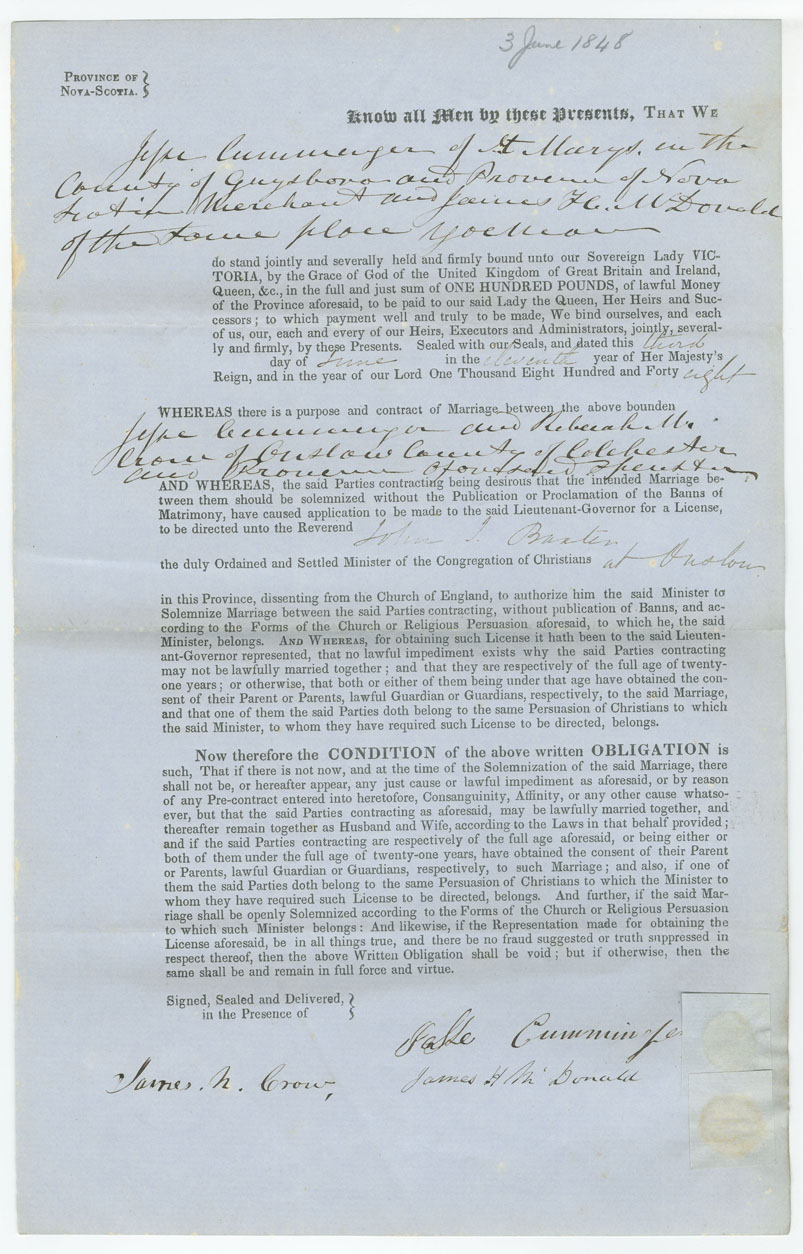 3 June 1848
PROVINCE OF
NOVA-SCOTIA.
Know all Men by these Presents, THAT WE
Jesse Cummenger of St Marys. in the
County of Guysboro and Province of Nova
Scotia Merchant and James H. McDonald
of the same place Yoeman
do stand jointly and severally held and firmly bound unto our Sovereign Lady VIC-
TORIA, by the Grace of God of the United Kingdom of Great Britain and Ireland,
Queen, &c., in the full and just sum of ONE HUNDRED POUNDS, of lawful Money
of the Province aforesaid, to be paid to our said Lady the Queen, Her Heirs and Suc-
cessors ; to which payment well and truly to be made, We bind ourselves, and each
of us, our, each and every of our Heirs, Executors and Administrators, jointly, several-
ly and firmly, by these Presents. Sealed with our Seals, and dated this third
day of June in the eleventh year of Her Majesty's
Reign, and in the year of our Lord One Thousand Eight Hundred and Forty eight
WHEREAS there is a purpose and contract of Marriage between the above bounden
Jesse Cummenger and Rebecah M.
Crow of Onslow County of Colchester
and Province aforesaid Spenster
AND WHEREAS, the said Parties contracting being desirous that the intended Marriage be-
tween them should be solemnized without the Publication or Proclamation of the Banns of
Matrimony, have caused application to be made to the said Lieutenant-Governor for a License,
to be directed unto the Reverend John I. Baxter
the duly Ordained and Settled Minister of the Congregation of Christians at Onslow
in this Province, dissenting from the Church of England, to authorize him the said Minister to
Solemnize Marriage between the said Parties contracting, without publication of Banns, and ac-
cording to the Forms of the Church or Religious Persuasion aforesaid, to which he, the said
Minister, belongs. AND WHEREAS, for obtaining such License it hath been to the said Lieuten-
ant-Governor represented, that no lawful impediment exists why the said Parties contracting
may not be lawfully married together ; and that they are respectively of the full age of twenty-
one years ; or otherwise, that both or either of them being under that age have obtained the con-
sent of their Parent or Parents, lawful Guardian or Guardians, respectively, to the said Marriage,
and that one of them the said Parties doth belong to the same Persuasion of Christians to which
the said Minister, to whom they have required such License to be directed, belongs.
Now therefore the CONDITION of the above written OBLIGATION is
such, That if there is not now, and at the time of the Solemnization of the said Marriage, there
shall not be, or hereafter appear, any just cause or lawful impediment as aforesaid, or by reason
of any Pre-contract entered into heretofore, Consanguinity, Affinity, or any other cause whatso-
ever, but that the said Parties contracting as aforesaid, may be lawfully married together, and
thereafter remain together as Husband and Wife, according to the Laws in that behalf provided ;
and if the said Parties contracting are respectively of the full age aforesaid, or being either or
both of them under the full age of twenty-one years, have obtained the consent of their Parent
or Parents, lawful Guardian or Guardians, respectively, to such Marriage ; and also, if one of
them the said Parties doth belong to the same Persuasion of Christians to which the Minister to
whom they have required such License to be directed, belongs. And further, if the said Mar-
riage shall be openly Solemnized according to the Forms of the Church or Religious Persuasion
to which such Minister belongs : And likewise, if the Representation made for obtaining the
License aforesaid, be in all things true, and there be no fraud suggested or truth suppressed in
respect thereof, then the above Written Obligation shall be void ; but if otherwise, then the
same shall be and remain in full force and virtue.
Signed, Sealed and Delivered,
in the Presence of
Jesse Cumminge
James N. Crow,
James H McDonald